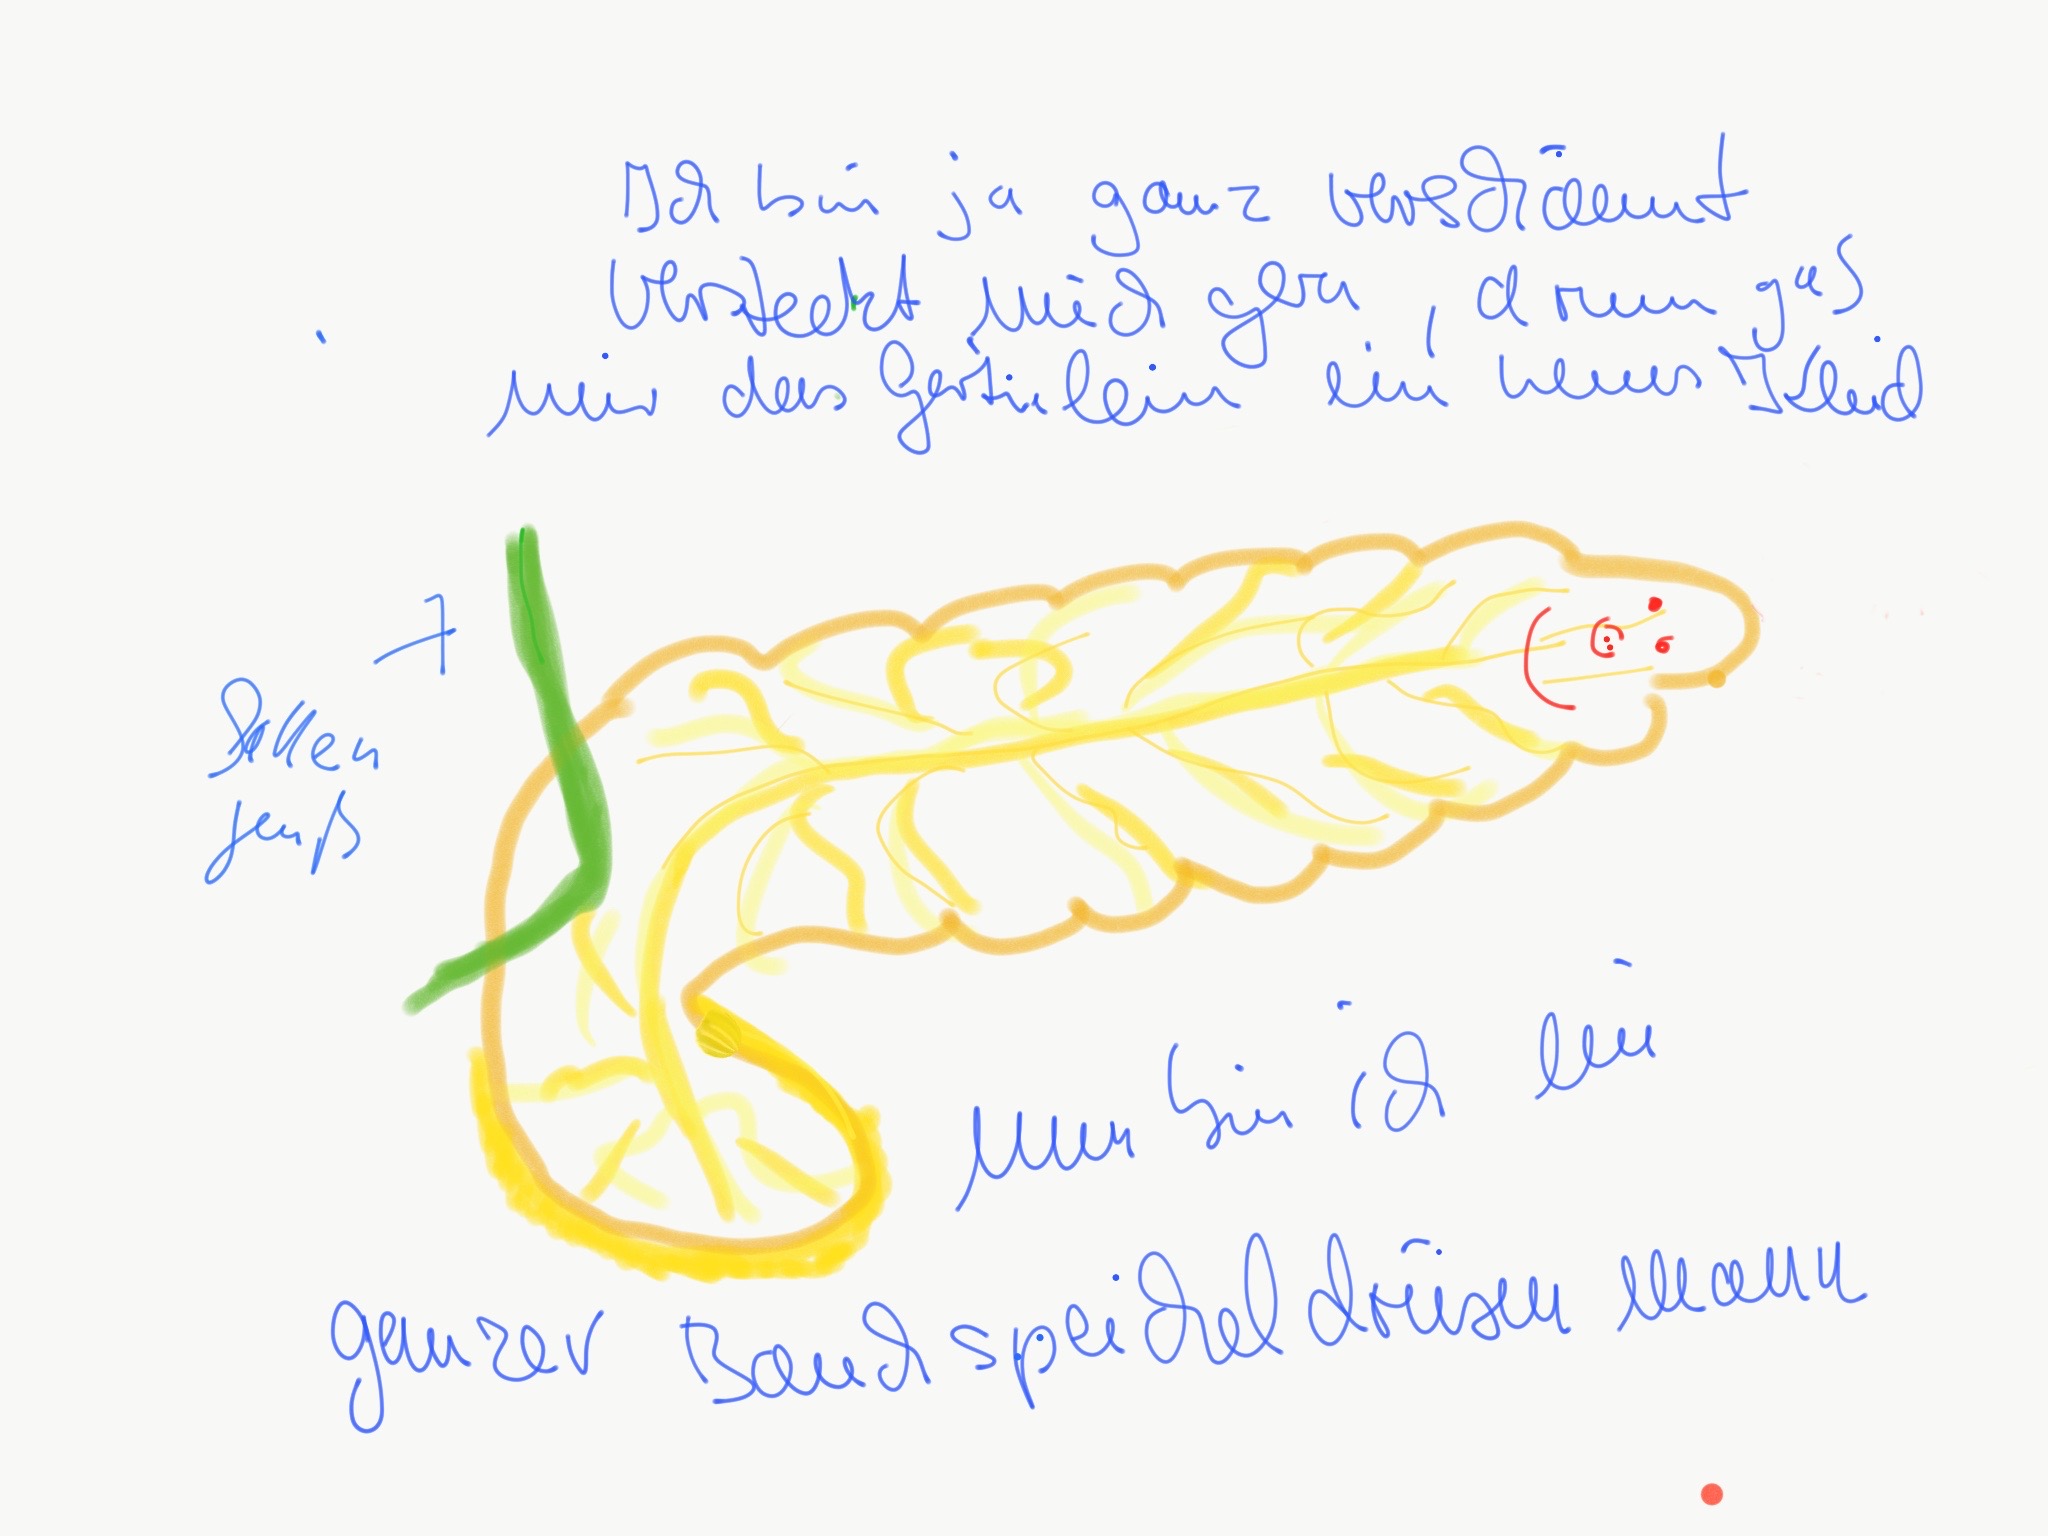 Ich bin ja ganz verschämt
versteckt mich gern, drum gab
mir das Gestirnlein ein neues Kleid
Gallen
gang
Nun bin ich ein
ganzer Bauchspeicheldrüsen mann